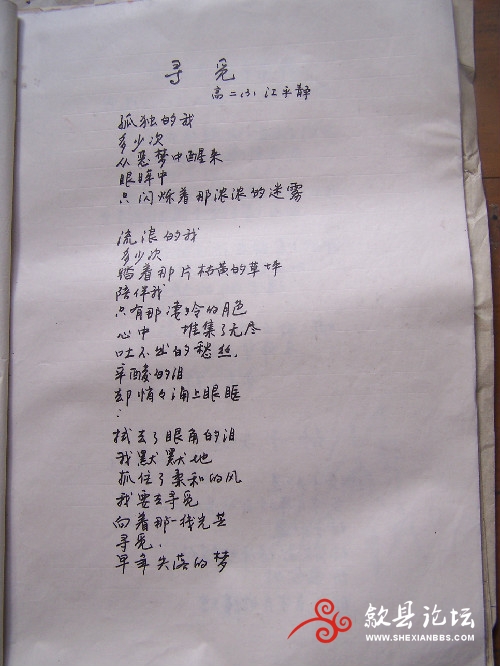 寻 觅
高二(3) 江平静
孤独的我
多少次
从恶梦中醒来
眼眸中
只闪烁着那浓浓的迷雾
流浪的我
多少次
踏着那片枯黄的草坪
陪伴我
只有那凄冷的月色
心中 堆集了无尽
吐不出的愁丝.
辛酸的泪
却悄々涌上眼眶
:
拭去了眼角的泪
我默默地
抓住了柔和的风
我要去寻觅
向着那一线光芒
寻觅.
早年失落的梦
歙县论坛
WWW.SHEXIANBBS.COM